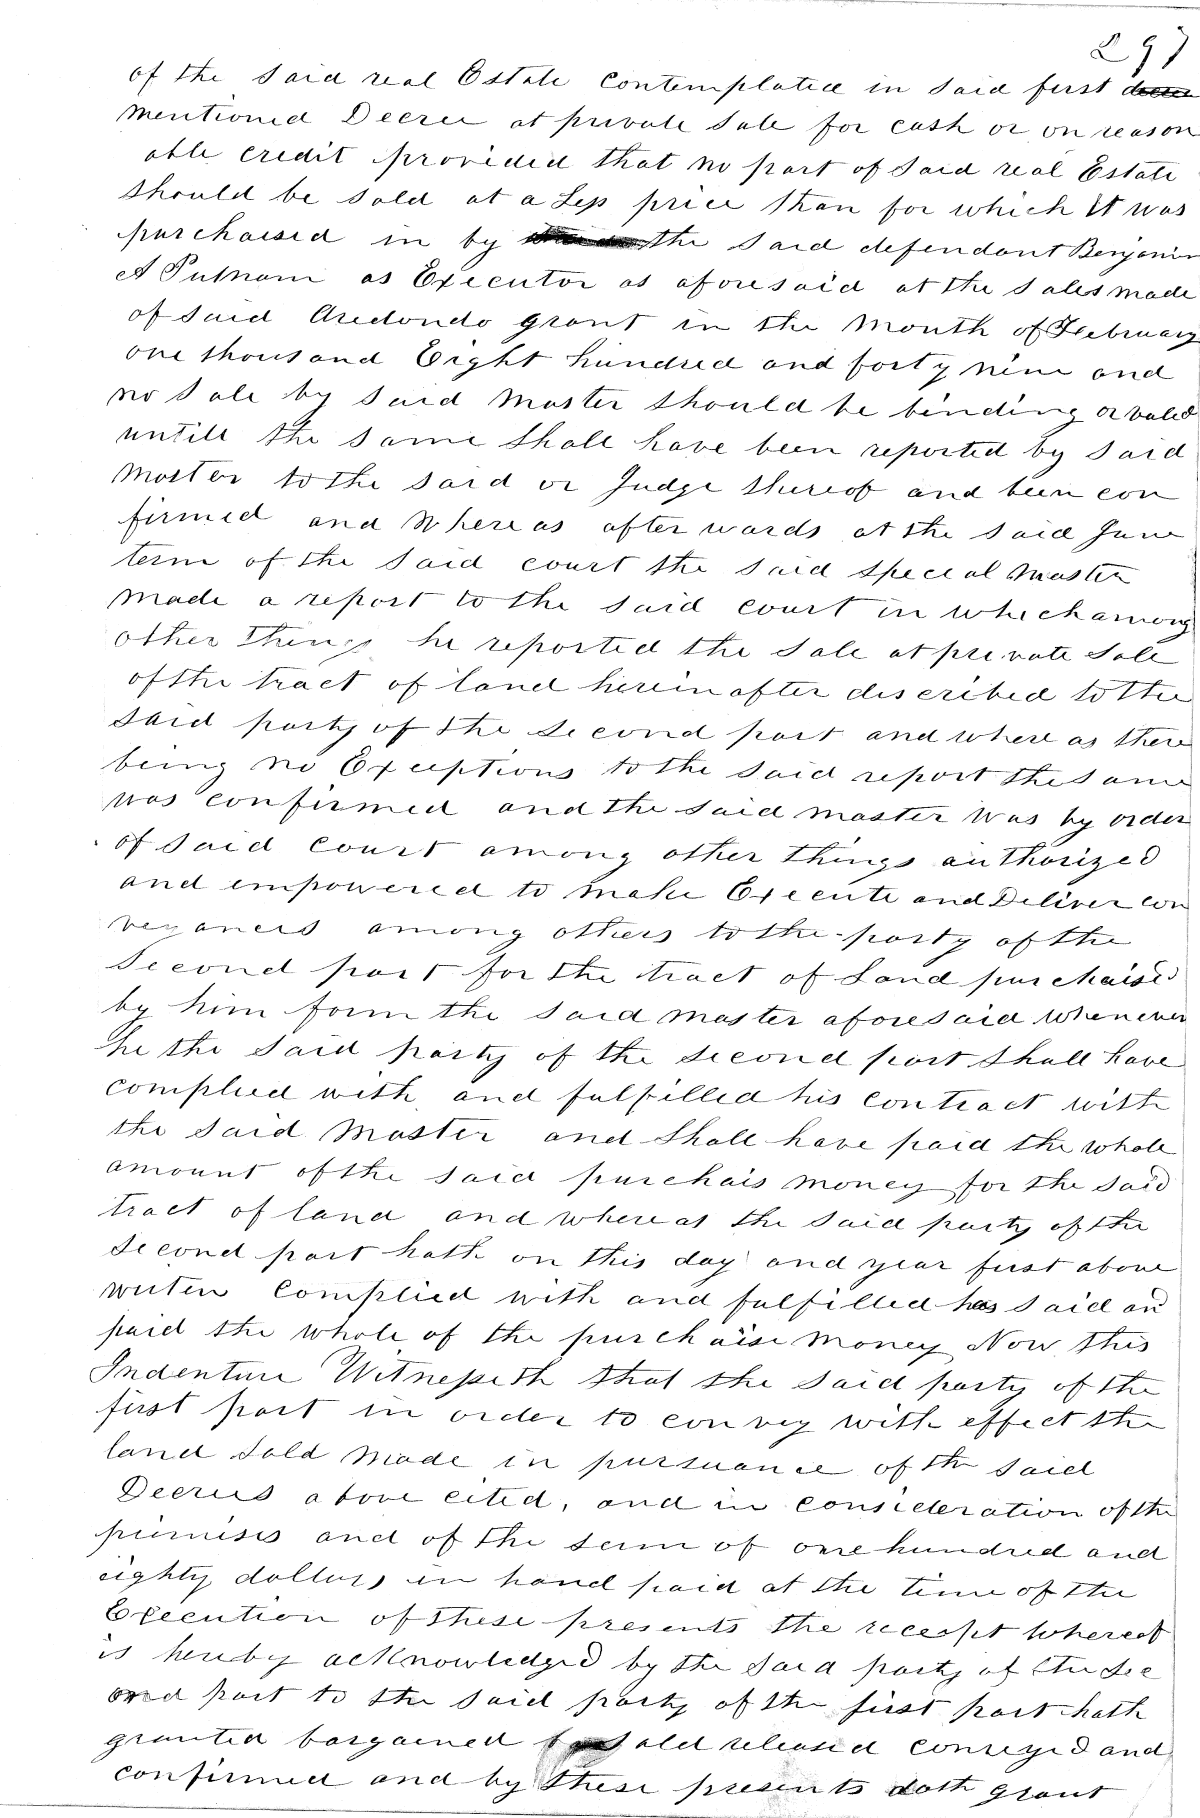 297
of the said real Estate contemplated in said first
mentioned Decree at private sale for cash or on reason
able credit provided that no part of said real Estate
should be sold at a Less price than for which it was
purchaised in by the said defendant Benjamin
A Putnam as Executor as aforesaid at the sales made
of said Aredondo grant in the month of February
one thousand Eight hundred and forty nine and
no sale by said Master should be binding or valed
untill the same shall have been reported by said
Master to the said or Judge thereof and been con
firmed and whereas after wards at the said June
term of the said court the said special Master
made a report to the said court in which among
other things he reported the sale at private sale
of the tract of land herein after discribed to the
said party of the second part and where as there
being no Exceptions to the said report the same
was confirmed and the said master was by order
of said court among other things authorized
and empowered to make Execute and Deliver con
veyances among others to the party of the
second part for the tract of Land purchaised
by him form the said master aforesaid whenever
he the said party of the second part shall have
complied with and fulfilled his contract with
the said Master and shall have paid the whole
amount of the said purchais money for the said
tract of land and whereas the said party of the
second part hath on this day and year first above
writen complied with and fulfilled has said and
paid the whole of the purchaise money Now this
Indenture Witnesseth that the said party of the
first part in order to convey with effect the
land sold made in pursuance of th said
Decrees above cited, and in consideration of the
premises and of the sum of one hundred and
eighty dollars in hand paid at the time of the
Execution of these presents the receipt whereof
is hereby acknowledged by the said party of the sec
ond part to the said party of the first part hath
granted bargained sold released conveyed and
confirmed and by these presents doth grant